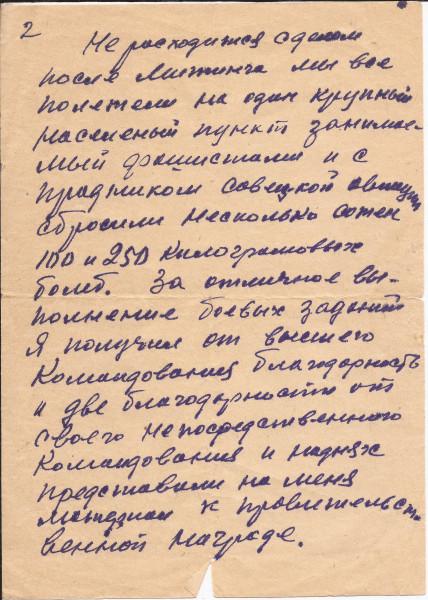 2
Не расходится с делом
после митинга мы все
полетели на один крупный
населеный пункт занимае-
мый фашистами и с
праздником советской авиации
сбросили несколько сотен
100 и 250 килограмовых
бомб. За отличное вы-
полнение боевых заданий
я получил от высшего
командования благодарность
и две благодарности от
своего непосредственного
командования и наднях
представили на меня
к правительст-
венной награде.